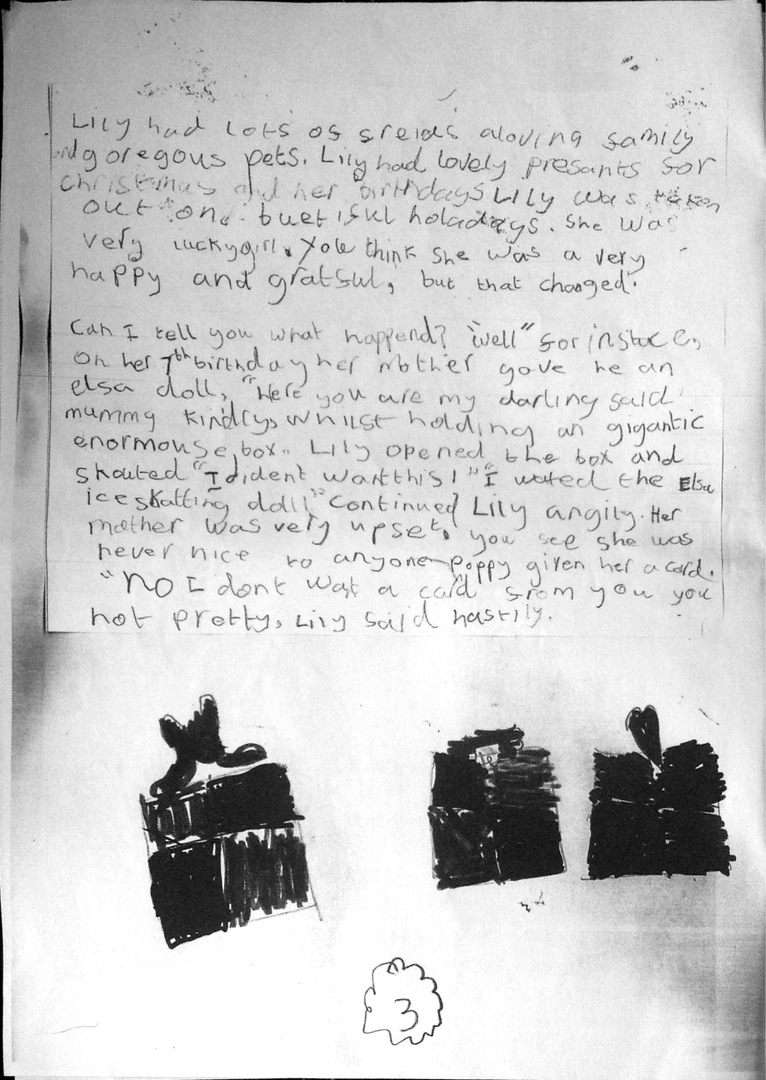 Lily had lots of freids aloving family
and goregous pets. Lily had lovely presants for
christmas and her birthdays Lily was taken
out on buetiful holadays. She was
very luckygirl. Yole think she was a very
happy and gratful, but that changed.
Can I tell you what happend? "well" for instace,
on her 7th birthday her mother gave he an
elsa doll, "Here you are my darling said
mummy kindly, whilst holding an gigantic
enormouse box. Lily opened the box and
shouted "I dident wantthis!" "I wated the Elsa
ice skatting doll" continued Lily angily. Her
mother was very upset, you see she was
never nice to anyone poppy given her a card.
"No I dont wat a card from you you
not pretty, Lily said hastily.
3